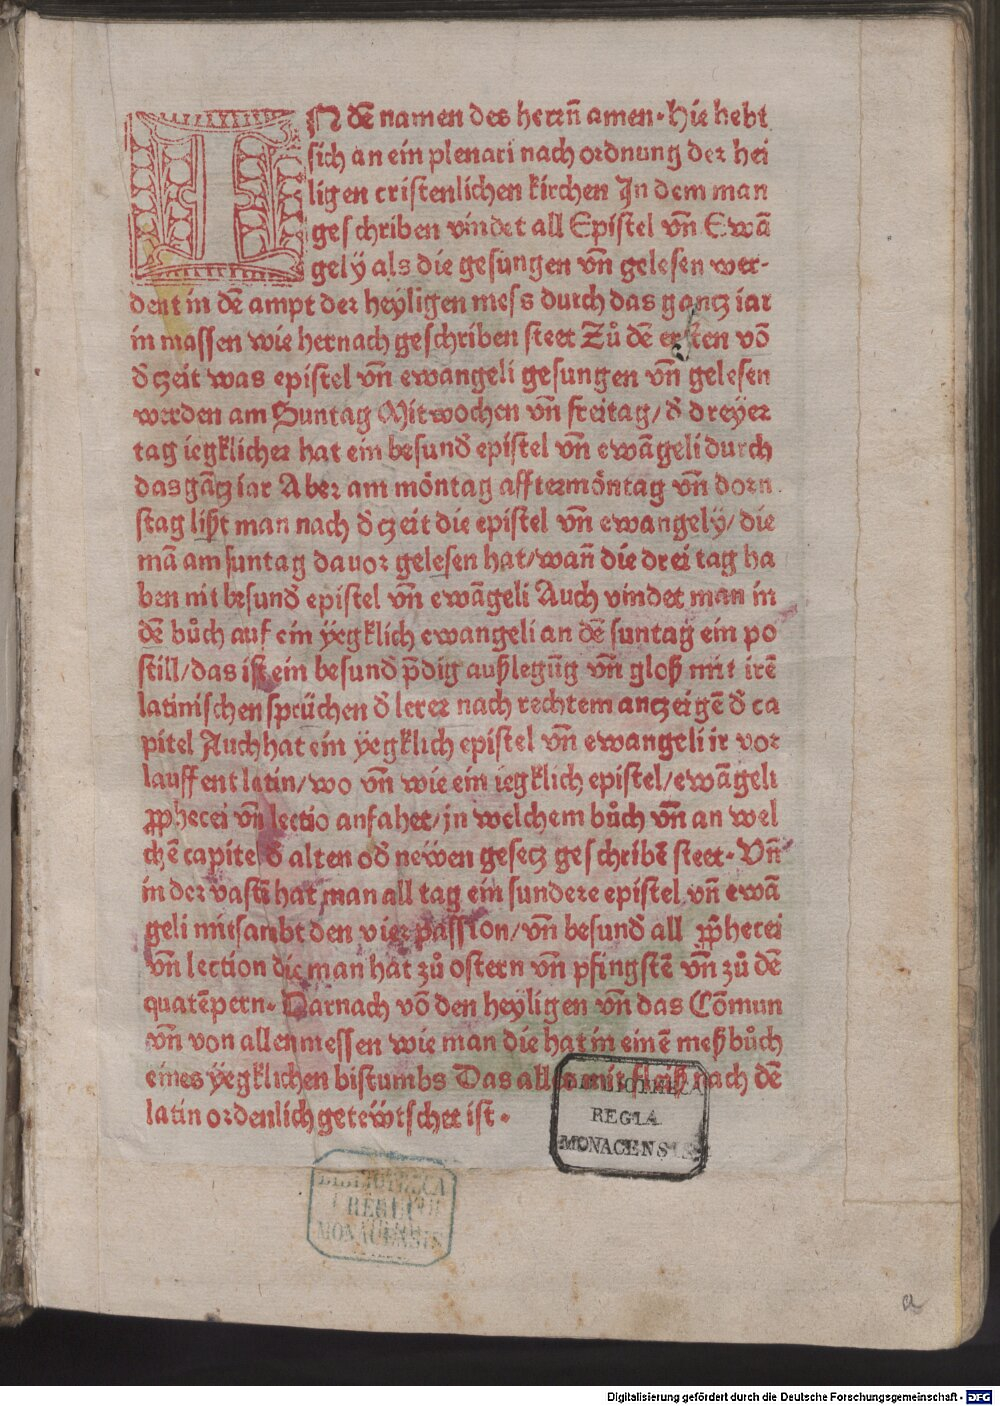 IN dē namen des herrn̄ amen. Hie hebt
sich an ein plenari nach ordnung der hei
ligen cristenlichen kirchen Jn dem man
geschriben vindet all Epistel vn̄ Ewā
gely̎ als die gesungen vn̄ gelesen wer-
dent in dē ampt der hey̎ligen mess durch das gantz iar
in massen wie hernach geschriben steet Zů dē ersten vō
d̄ czeit was epistel vn̄ ewangeli gesungen vn̄ gelesen
werden am Suntag Mitwochen vn̄ freitag/ d̄ drey̎er
tag iegklicher hat ein besund̄ epistel vn̄ ewāgeli durch
das gātz iar Aber am möntag afftermöntag vn̄ dorn
stag lißt man nach d̄ czeit die epistel vn̄ ewangely̎/ die
mā am suntag dauor gelesen hat/ wan̄ die drei tag ha
ben nit besund̄ epistel vn̄ ewāgeli Auch vindet man in
dē bůch auf ein y̎egklich ewangeli an dē suntag ein po
still/ das ist ein besund̄ p̄dig außlegūg vn̄ gloß mit irē
latinischen sprüchen d̄ lerer nach rechtem anczeigē d̄ ca
pitel Auch hat ein y̎egklich epistel vn̄ ewangeli ir vor
lauffent latin/ wo vn̄ wie ein iegklich epistel/ ewāgeli
ꝓphecei vn̄ lectio anfahet/ jn welchem bůch vn̄ an wel
chē capitel d̄ alten od̄ neẅen gesecz geschribē steet. Vn̄
in der vastē hat man all tag ein sundere epistel vn̄ ewā
geli mitsambt den vier passion/ vn̄ besund̄ all ꝓphecei
vn̄ lection die man hat zů ostern vn̄ pfingstē vn̄ zů dē
quatēpern. Darnach vō den hey̎ligen vn̄ das Cōmun
vn̄ von allen messen wie man die hat in einē meß bůch
eines y̎egklichen bistumbs Das alles mit fleiß nach dē
latin ordenlich geteẅtschet ist.
BIBLIOTHECA
REGIA
MONACENSIS
BIBLIOTHECA
REGIA
MONACENSIS
a
Digitalisierung gefördert durch die Deutsche Forschungsgemeinschaft - DFG